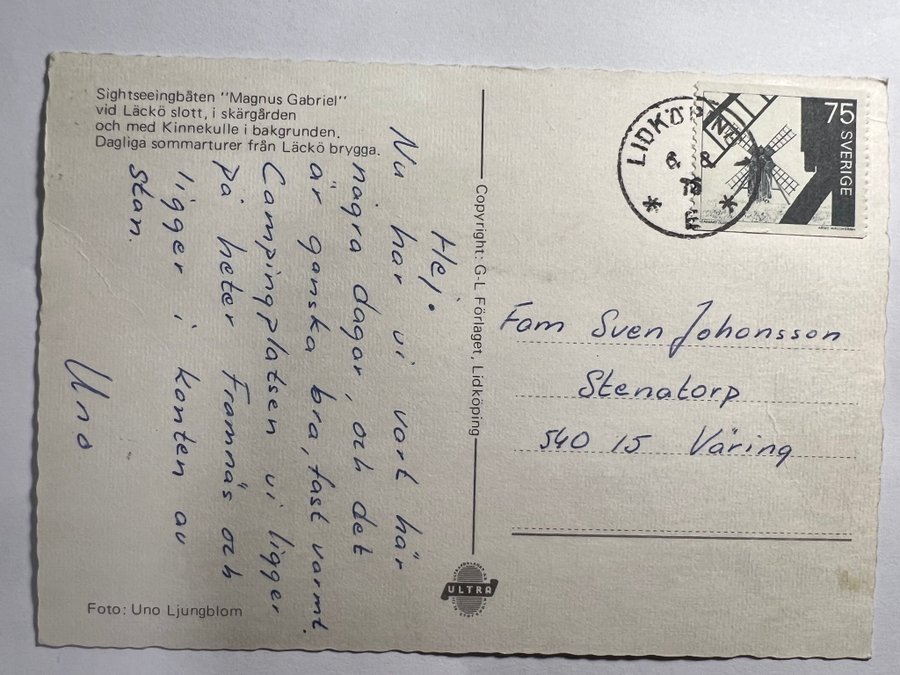 Sightseeingbåten "Magnus Gabriel"
vid Läckö slott, i skärgården
och med Kinnekulle i bakgrunden.
Dagliga sommarturer från Läckö brygga.
Hej.
Nu har vi vart här
några dagar, och det
är ganska bra, fast varmt.
Campingplatsen vi ligger
på heter Framnäs och
ligger i konten av
stan.
Uno
Foto: Uno Ljungblom
Copyright: G-L Förlaget, Lidköping
ULTRA
LIDKÖPING
6. 8.
75
SVERIGE
Fam Sven Johansson
Stenatorp
540 15 Väring